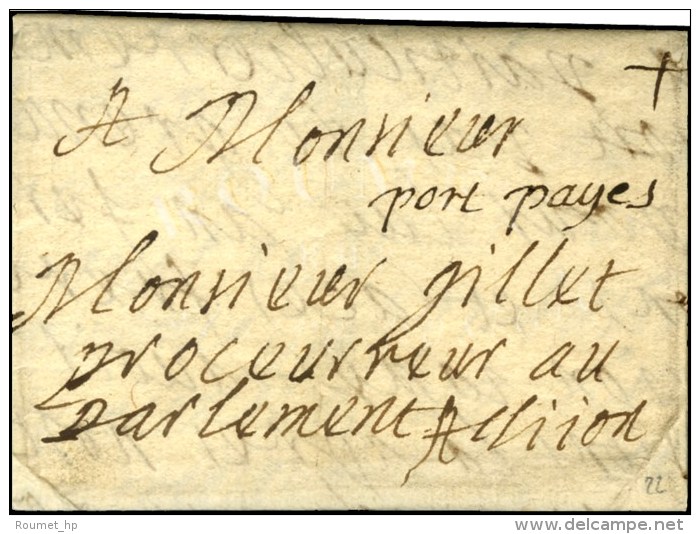 A Monsieur
port payes
Monsieur gillet
proceurreur au
parlement A
22
Roumet_hp
delcampe.net